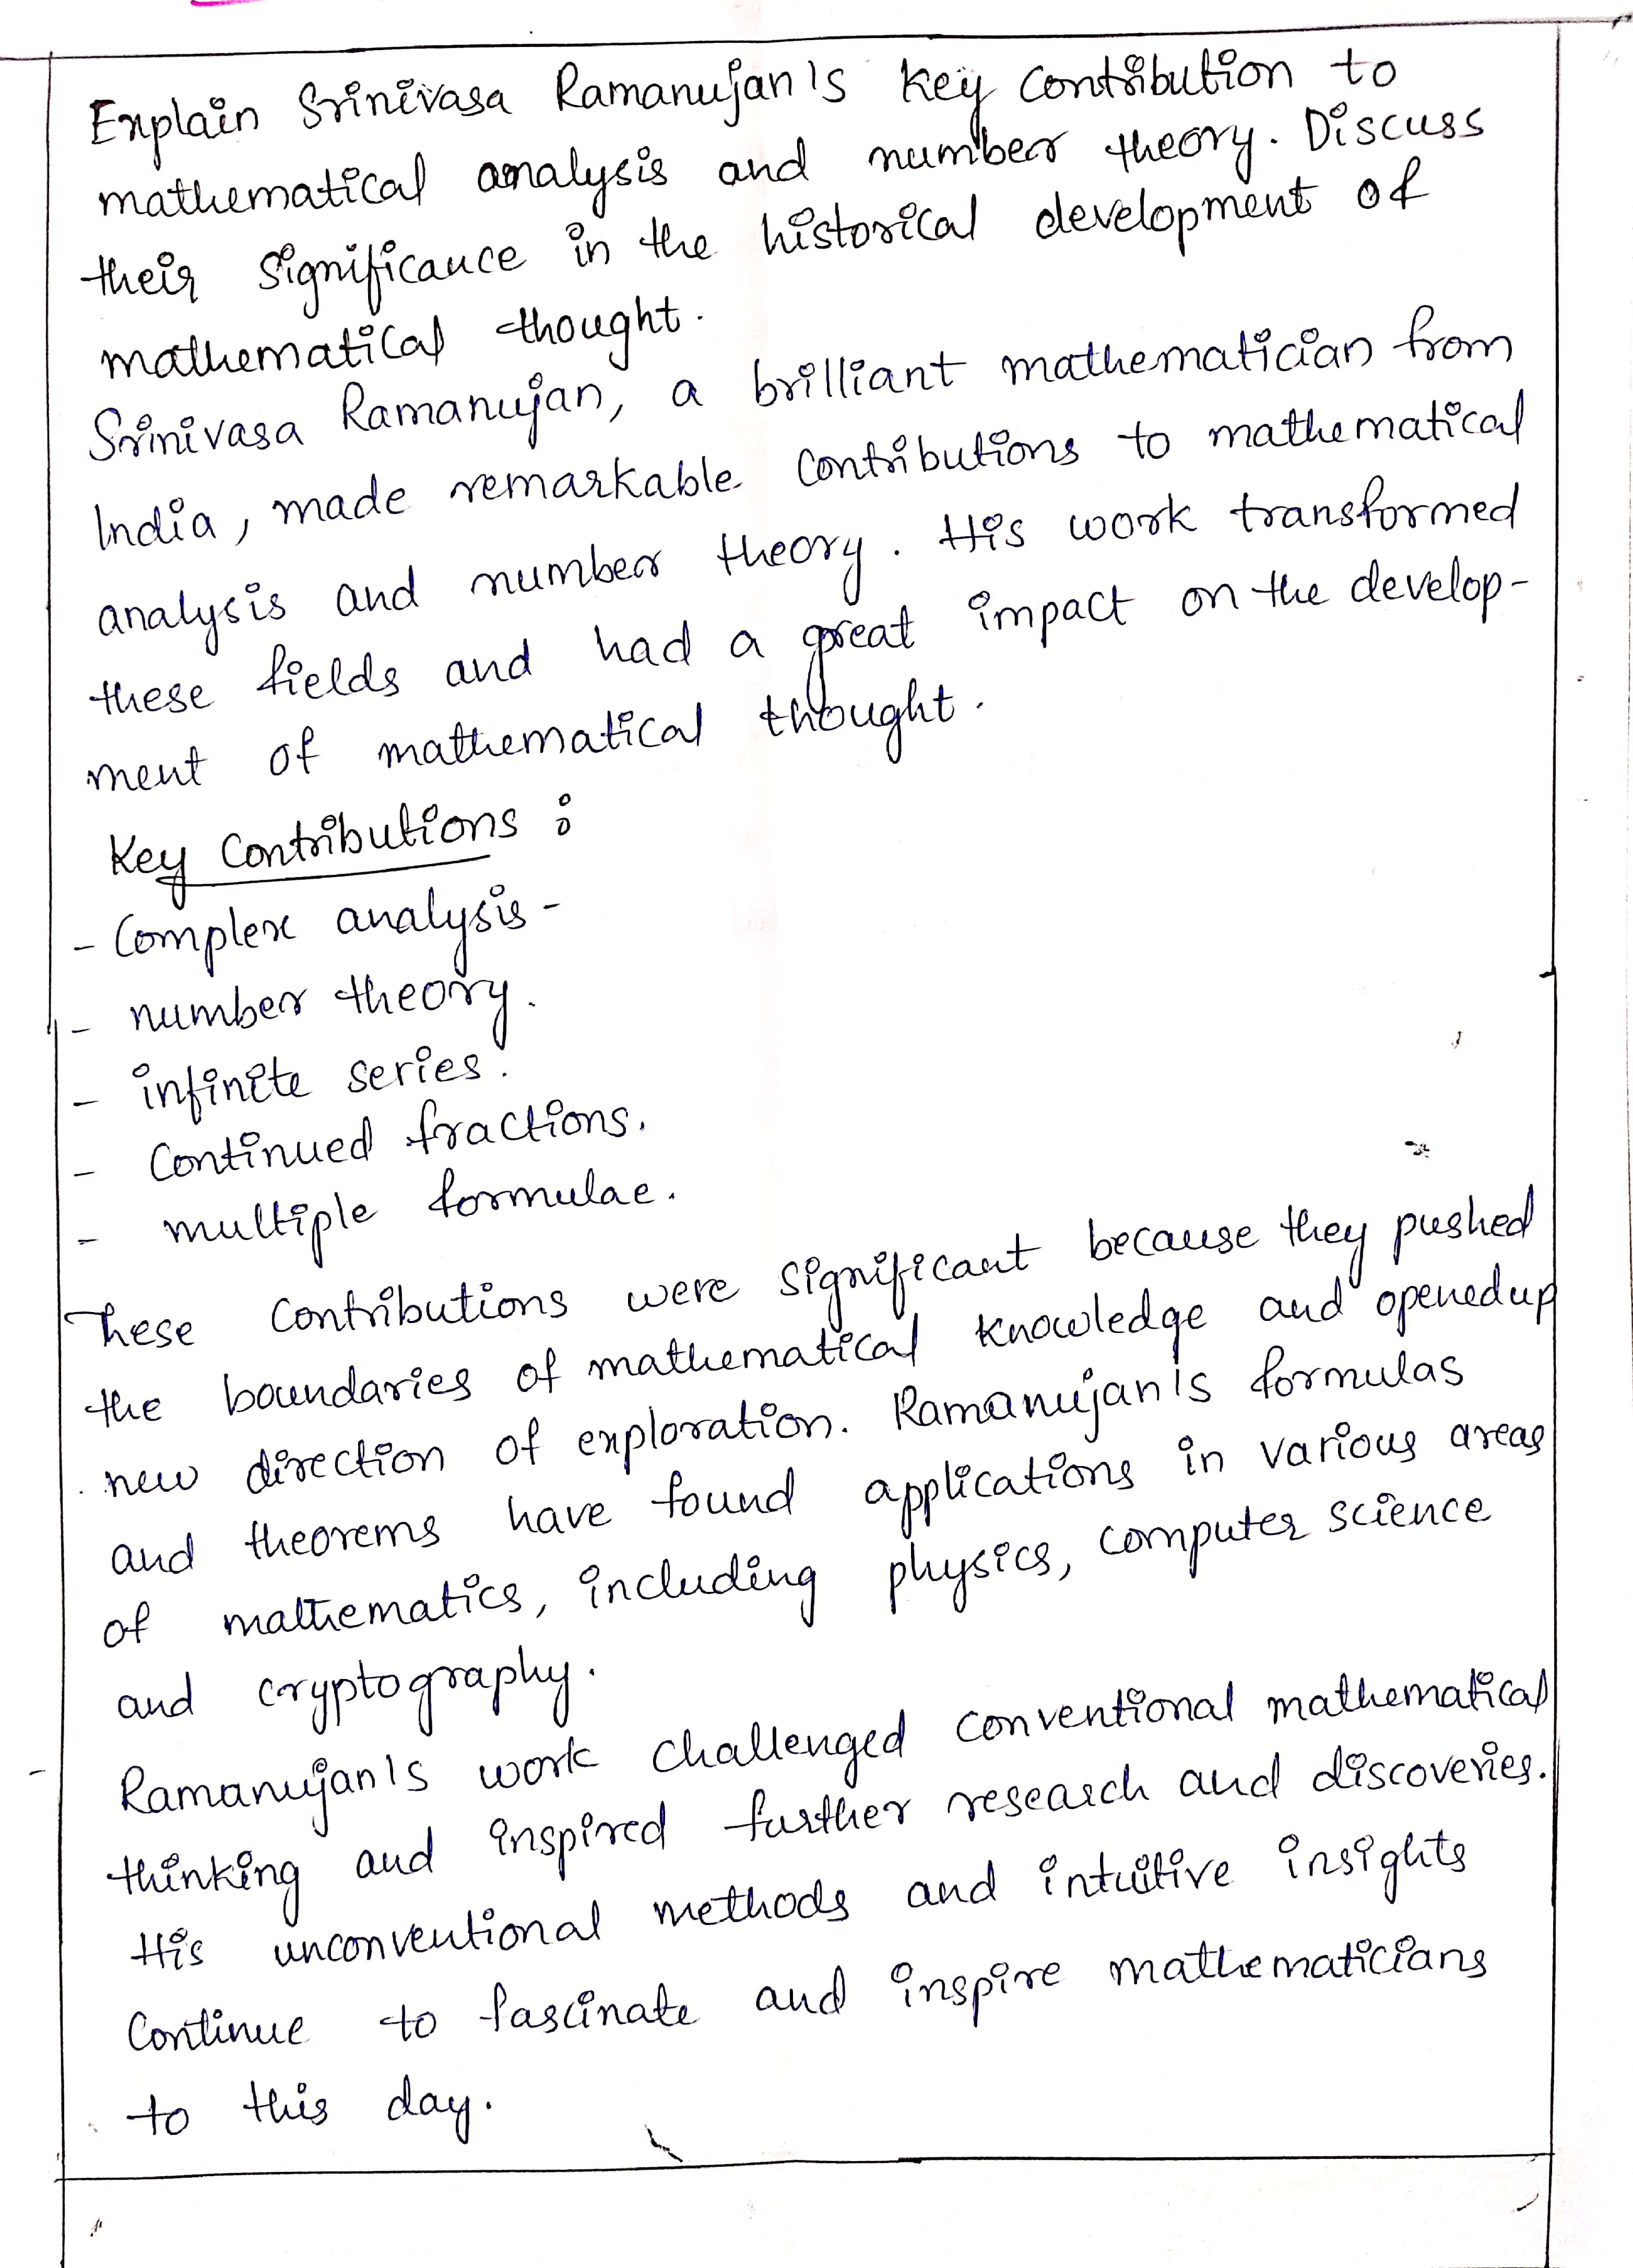 Explain Srinivasa Ramanujan's key contribution to
mathematical analysis and number theory. Discuss
their significance in the historical development of
mathematical thought.
Srinivasa Ramanujan, a brilliant mathematician from
India, made remarkable contributions to mathematical
analysis and number theory. His work transformed
these fields and had a great impact on the develop-
ment of mathematical thought.
Key Contributions :
- Complex analysis -
- number theory.
- infinite series.
- Continued fractions.
- multiple formulae.
These contributions were significant because they pushed
the boundaries of mathematical knowledge and opened up
new direction of exploration. Ramanujan's formulas
and theorems have found applications in various areas
of mathematics, including physics, computer science
and cryptography.
Ramanujan's work challenged conventional mathematical
thinking and inspired further research and discoveries.
His unconventional methods and intuitive insights
Continue to fascinate and inspire mathematicians
to this day.